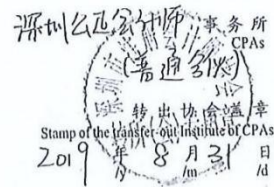 深圳公正会计师事务所
CPAs
(普通合伙)
转出协会盖章
Stamp of the transfer-out Institute of CPAs
2019年8月31日
/y /m /d